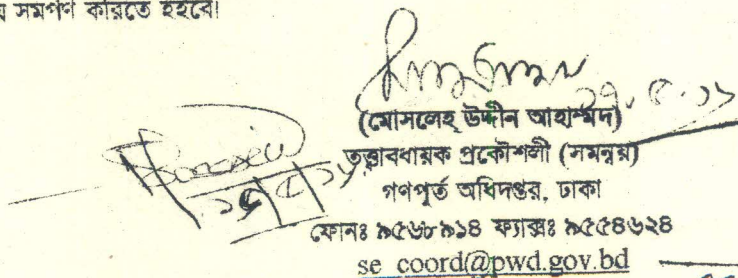 সমর্পণ করিতে হইবে।
(মোসলেহ্ উদ্দীন আহাম্মদ)
তত্ত্বাবধায়ক প্রকৌশলী (সমন্বয়)
গণপূর্ত অধিদপ্তর, ঢাকা
ফোনঃ ৯৫৬৮৯১৪ ফ্যাক্সঃ ৯৫৫৪৬২৪
se_coord@pwd.gov.bd